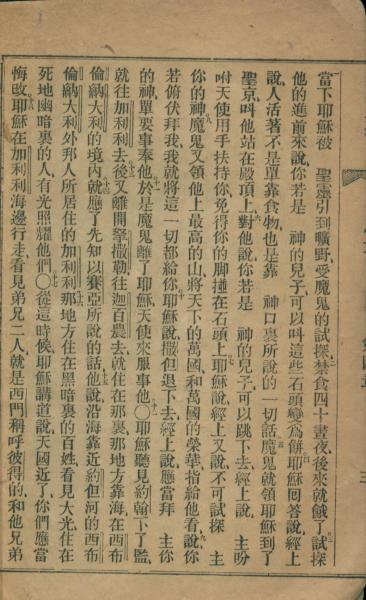 當下耶穌被　聖靈引到曠野受魔鬼的試探禁食四十晝夜後來就餓了試探
他的進前來說你若是　神的兒子可以叫這些石頭變爲餅耶穌回答說經上
說人活著不是單靠食物也是靠　神口裏所說的一切話魔鬼就領耶穌到了
聖京叫他站在殿頂上對他說你若是　神的兒子可以跳下去經上說　主吩
咐天使用手扶持你免得你的脚撞在石頭上耶穌說經上又說不可試探　主
你的神魔鬼又領他上最高的山將天下的萬國和萬國的榮華指給他看說你
若俯伏拜我我就將這一切都給你耶穌說撒但退下去經上說應當拜　主你
的神單要事奉他於是魔鬼離了耶穌天使來服事他〇耶穌聽見約翰下了監
就往加利利去後又離開拏撒勒往迦百農去就住在那裏那地方靠海在西布
倫納大利的境內就應了先知以賽亞所說的話他說沿海靠近約但河的西布
倫納大利外邦人所居住的加利利那地方住在黑暗裏的百姓看見大光住在
死地幽暗裏的人有光照耀他們〇從這時候耶穌講道說天國近了你們應當
悔改耶穌在加利利海邊行走看見弟兄二人就是西門稱呼彼得的和他兄弟